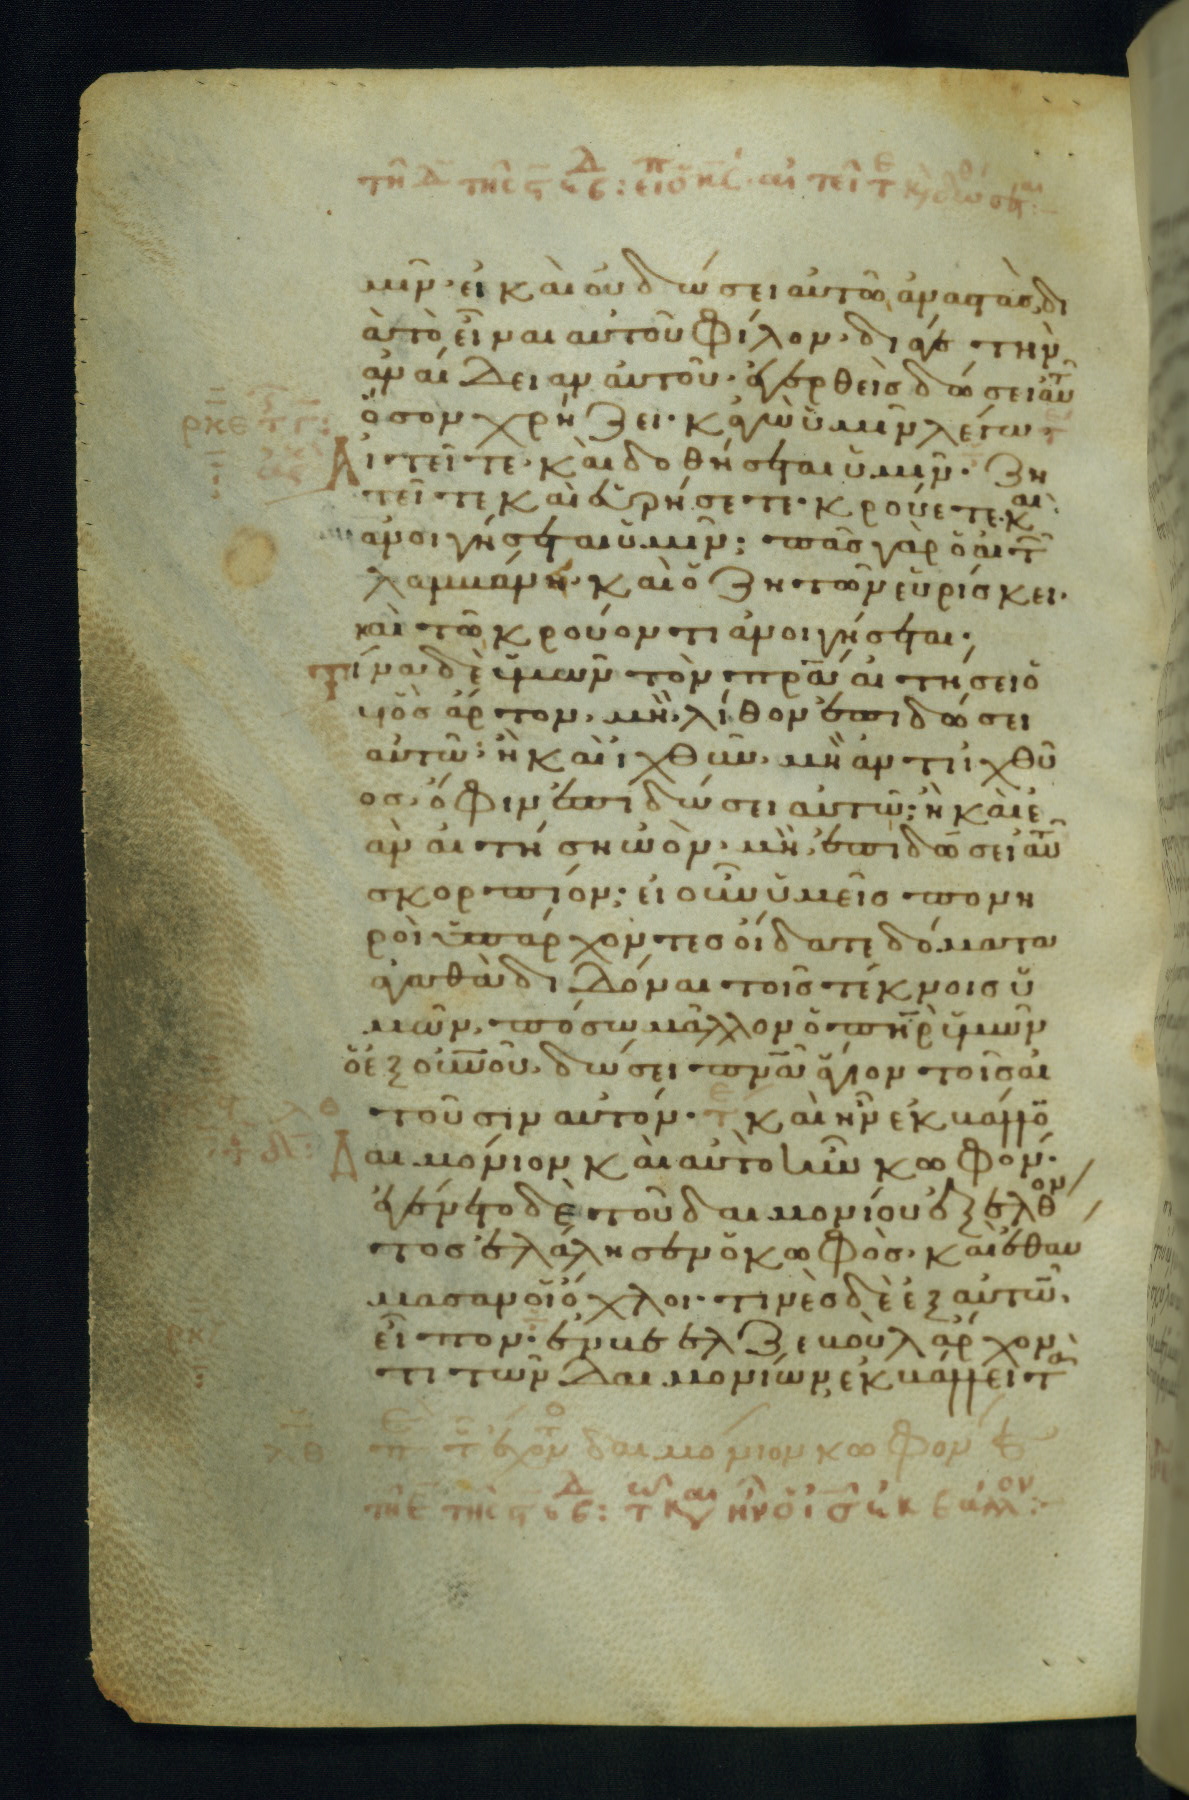 μῖν· εἰ καὶ οὐ δώσει αὐτῶ ἀναστὰσ, δι
ὰ τὸ εἶναι αὐτοῦ φίλον· διά γε τὴν
ἀναίδειαν αὐτοῦ· ἐγερθεὶσ δώσει αὐτ
ὅσον χρήζει· κἀγὼ ὑμῖν λέγω·
Αἰτεῖτε· καὶ δοθήσεται ὑμῖν· ζη
τεῖτε καὶ εὑρήσετε· κρούετε· καὶ
ἀνοιγήσεται ὑμῖν; πᾶσ γὰρ ὁ αἰτ
λαμβάνει· καὶ ὁ ζητῶν εὑρίσκει·
καὶ τῶ κρούοντι ἀνοιγήσεται·
τίνα δὲ ὑμῶν τὸν πρα αἰτήσει ὁ
υἱὸσ ἄρτον· μὴ λίθον ἐπιδώσει
αὐτῶ· ἢ καὶ ἰχθῦν· μὴ ἀντὶ ἰχθύ
οσ, ὄφιν ἐπιδώσει αὐτῶ; ἢ καὶ ἐ
ὰν αἰτήση ὠὸν· μὴ ἐπιδώσει αὐτ
σκορπίον; εἰ οὖν ὑμεῖσ πονη
ροὶ ὑπάρχοντεσ οἴδατε δόματα
ἀγαθὰ διδόναι τοῖσ τέκνοισ ὑ
μῶν, πόσω μᾶλλον ὁ πηρ ὑμῶν
ὁ ἐξ οὐνοῦ, δώσει πνα ἅγιον τοῖσ αἰ
τοῦσιν αὐτόν· καὶ ἦν ἐκβάλλ
Δαιμόνιον καὶ αὐτὸ ἦν κωφόν·
ἐγένετο δὲ τοῦ δαιμονίου ἐξελθόν
τοσ ἐλάλησεν ὁ κωφὸσ· καὶ ἐθαύ
μασαν οἱ ὄχλοι· τινὲσ δὲ ἐξ αὐτῶν
εἶπον· ἐν βεελζεβοὺλ ἄρχον
τι τῶν δαιμονίων, ἐκβάλλει τὰ
δαιμόνιον κωφον